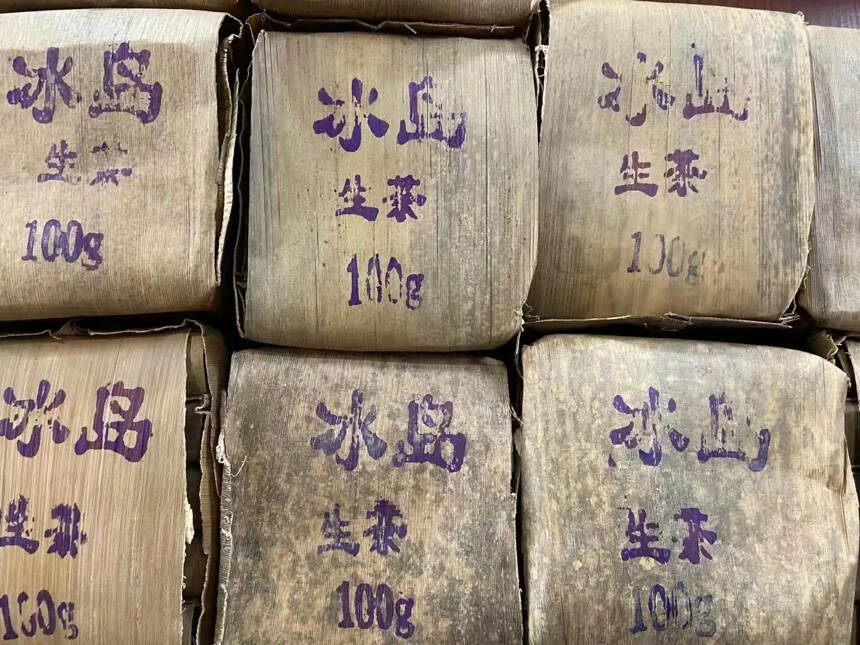 冰岛
生茶
100g
冰岛
生茶
100g
冰岛
生茶
100g
冰岛
生茶
100g
冰岛
生茶
100g
冰岛
生茶
100g